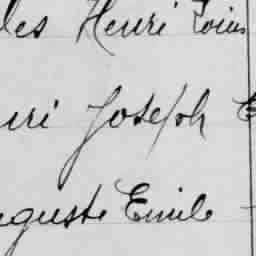 les Henri Louis
uri Joseph
uguste Emile -